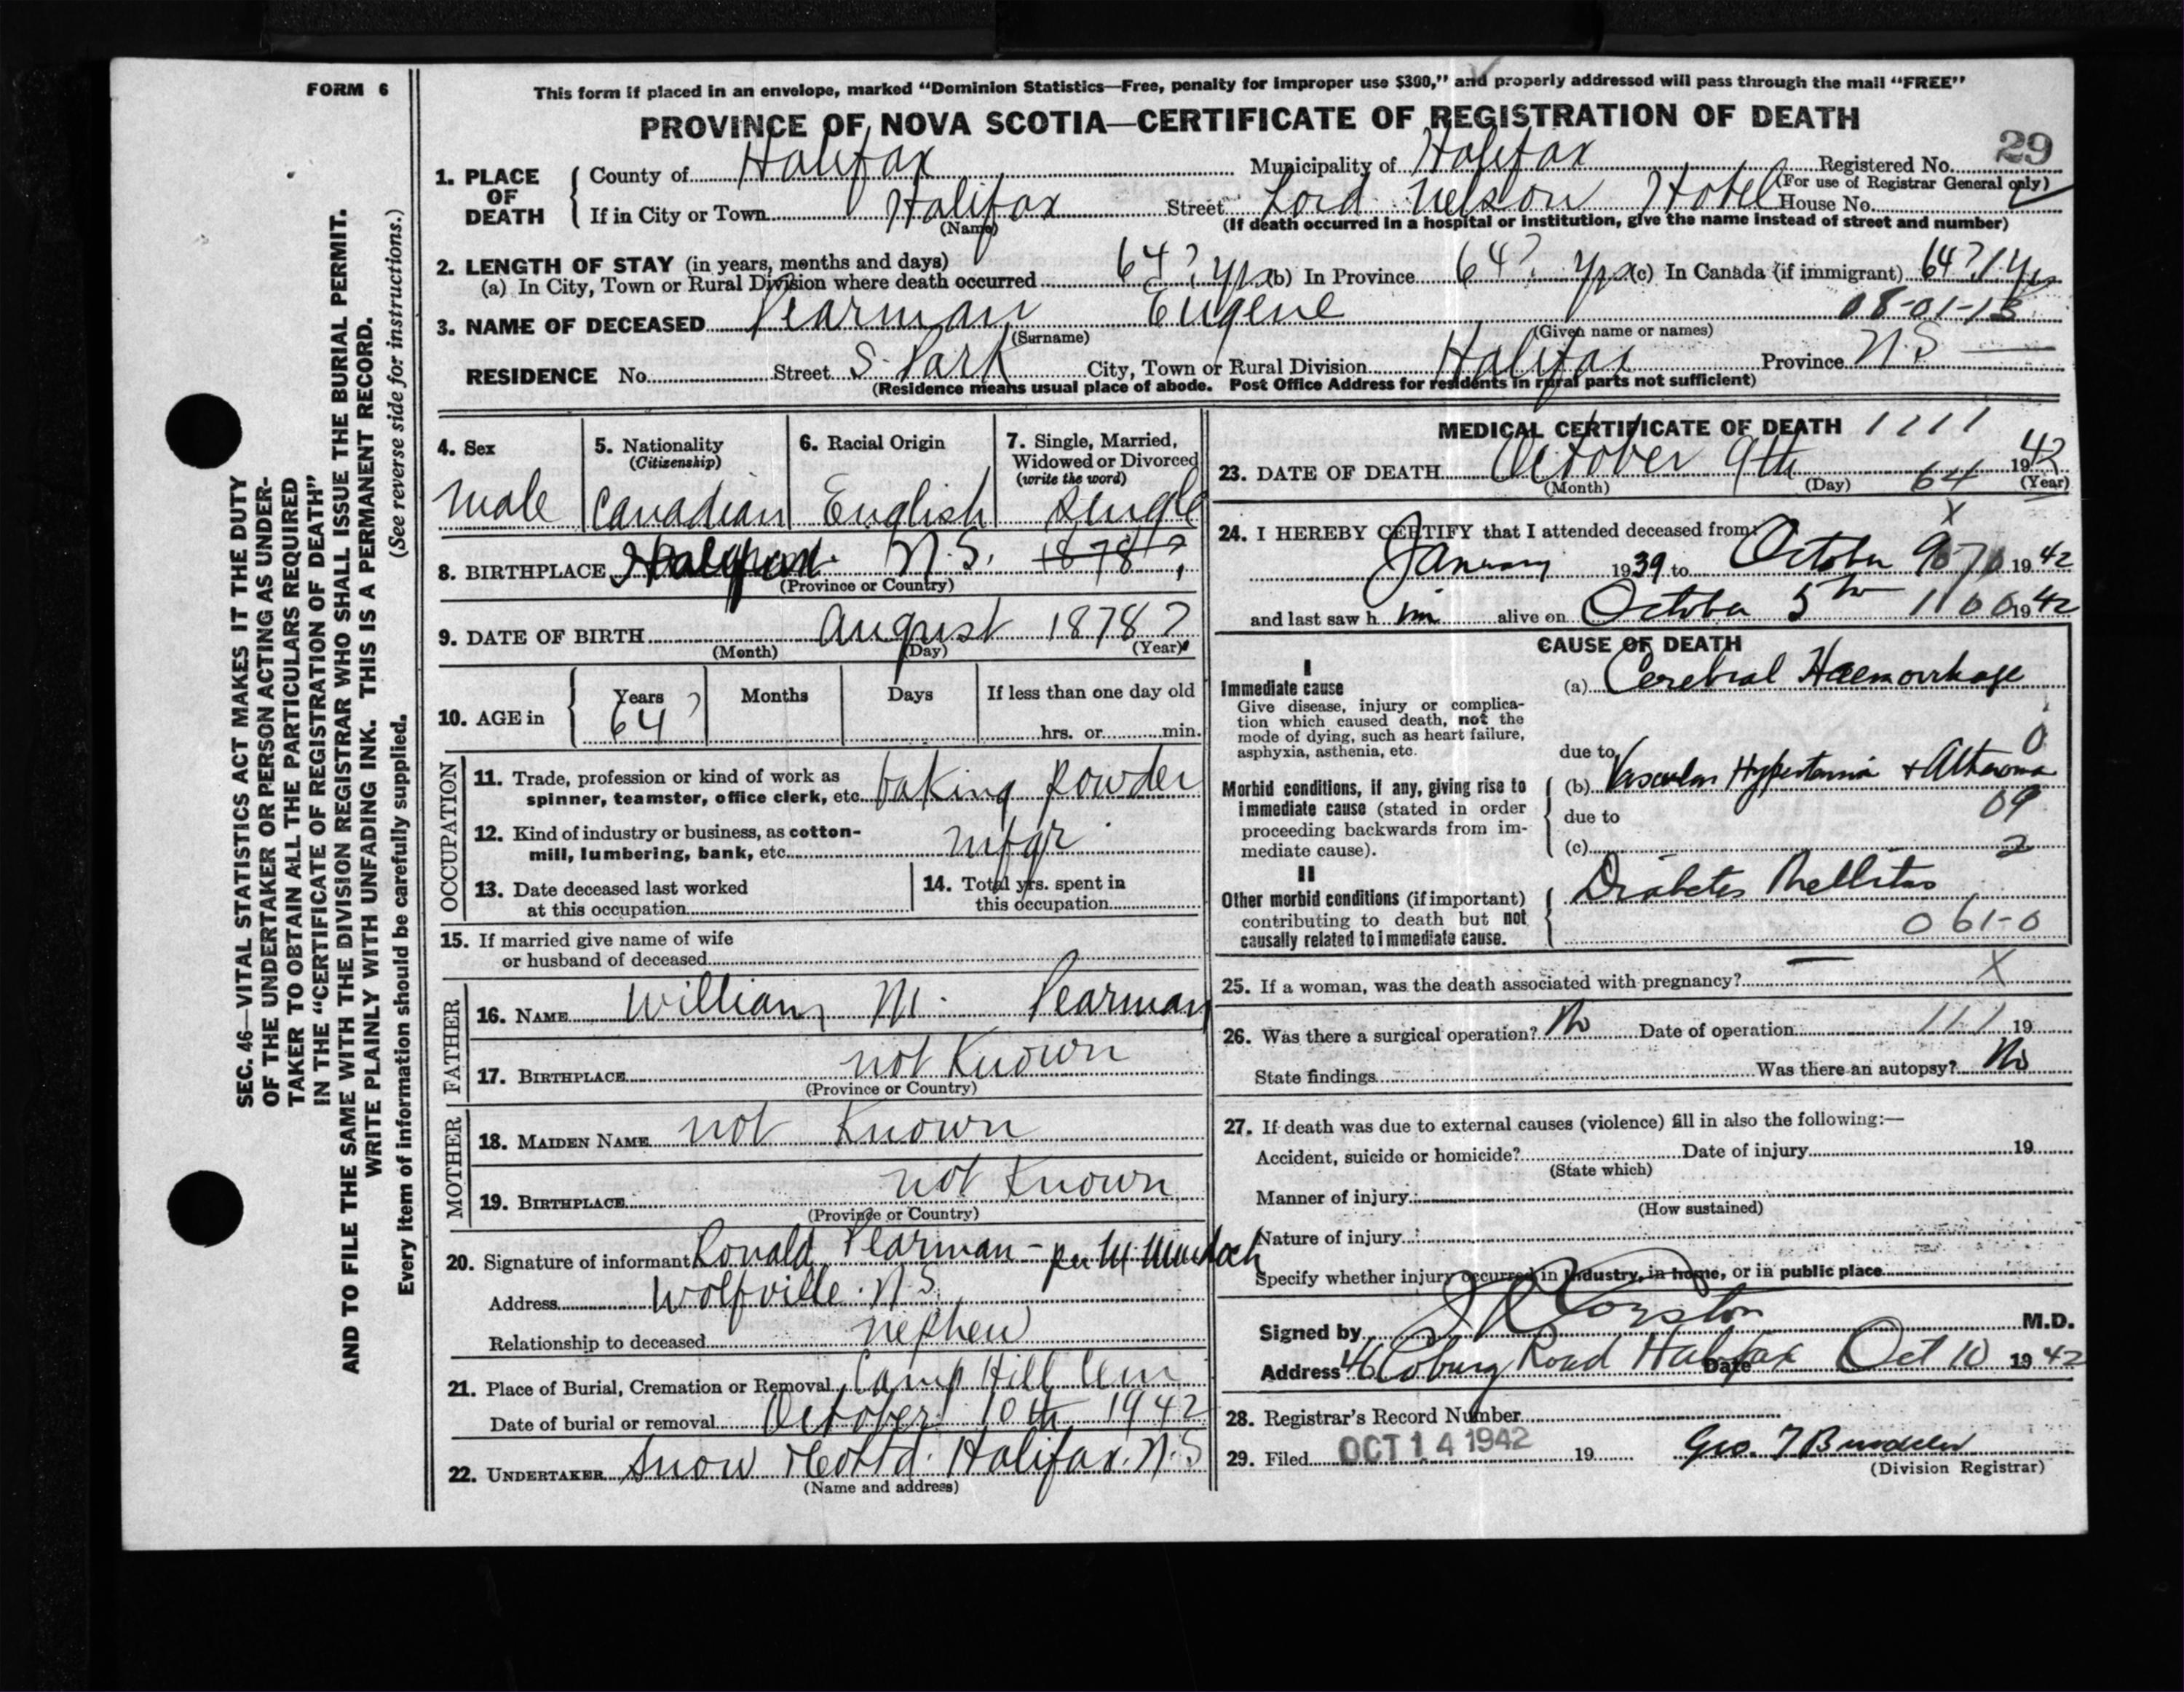 FORM 6
This form if placed in an envelope, marked "Dominion Statistics—Free, penalty for improper use $300," and properly addressed will pass through the mail "FREE"
PROVINCE OF NOVA SCOTIA—CERTIFICATE OF REGISTRATION OF DEATH
29
1. PLACE OF DEATH
County of Halifax Municipality of Halifax Registered No.
(For use of Registrar General only)
If in City or Town Halifax Street Lord Nelson Hotel House No.
(Name) (If death occurred in a hospital or institution, give the name instead of street and number)
2. LENGTH OF STAY (in years, months and days)
(a) In City, Town or Rural Division where death occurred 64? yrs (b) In Province 64? yrs (c) In Canada (if immigrant) 64?
08-01-13
3. NAME OF DECEASED Pearman Eugene
(Surname) (Given name or names)
RESIDENCE No. Street S. Park City, Town or Rural Division Halifax Province N.S
(Residence means usual place of abode. Post Office Address for residents in rural parts not sufficient)
4. Sex
male
5. Nationality
(Citizenship)
Canadian
6. Racial Origin
English
7. Single, Married,
Widowed or Divorced
(write the word)
Single
8. BIRTHPLACE N.S. 1878?
(Province or Country)
9. DATE OF BIRTH August 1878?
(Month) (Day) (Year)
10. AGE in
Years Months Days If less than one day old
64? hrs. or min.
OCCUPATION
11. Trade, profession or kind of work as
spinner, teamster, office clerk, etc. baking powder
12. Kind of industry or business, as cotton-
mill, lumbering, bank, etc. mfgr
13. Date deceased last worked
at this occupation
14. Total yrs. spent in
this occupation
15. If married give name of wife
or husband of deceased
FATHER
16. NAME William M. Pearman
17. BIRTHPLACE not known
(Province or Country)
MOTHER
18. MAIDEN NAME not known
19. BIRTHPLACE not known
(Province or Country)
20. Signature of informant Ronald Pearman - per M Murdoch
Address Wolfville. N.S.
Relationship to deceased nephew
21. Place of Burial, Cremation or Removal Camp Hill Cem
Date of burial or removal October 10th 1942
22. UNDERTAKER Snow & Co Ltd. Halifax. N.S
(Name and address)
MEDICAL CERTIFICATE OF DEATH 1111
23. DATE OF DEATH October 9th 64 1942
(Month) (Day) (Year)
X
24. I HEREBY CERTIFY that I attended deceased from:
January 1939 to October 1942
and last saw him alive on October 5th 1100 1942
CAUSE OF DEATH
I
Immediate cause
Give disease, injury or complica-
tion which caused death, not the
mode of dying, such as heart failure,
asphyxia, asthenia, etc.
(a) Cerebral Haemorrhage
0
due to
Morbid conditions, if any, giving rise to
immediate cause (stated in order
proceeding backwards from im-
mediate cause).
(b) Vascular Hypertension + Atheroma
09
due to
(c) 2
II
Other morbid conditions (if important)
contributing to death but not
causally related to immediate cause.
Diabetes Mellitus
061-0
25. If a woman, was the death associated with pregnancy? — X
26. Was there a surgical operation? No Date of operation 111 19
State findings Was there an autopsy? No
27. If death was due to external causes (violence) fill in also the following:—
Accident, suicide or homicide? Date of injury 19
(State which)
Manner of injury
(How sustained)
Nature of injury
Specify whether injury occurred in industry, in home, or in public place
Signed by M.D.
Address 46 Coburg Road Halifax Date Oct 10 1942
28. Registrar's Record Number
29. Filed OCT 14 1942 19 Geo. T
(Division Registrar)
SEC. 46—VITAL STATISTICS ACT MAKES IT THE DUTY
OF THE UNDERTAKER OR PERSON ACTING AS UNDER-
TAKER TO OBTAIN ALL THE PARTICULARS REQUIRED
IN THE "CERTIFICATE OF REGISTRATION OF DEATH"
AND TO FILE THE SAME WITH THE DIVISION REGISTRAR WHO SHALL ISSUE THE BURIAL PERMIT.
WRITE PLAINLY WITH UNFADING INK. THIS IS A PERMANENT RECORD.
Every item of information should be carefully supplied. (See reverse side for instructions.)